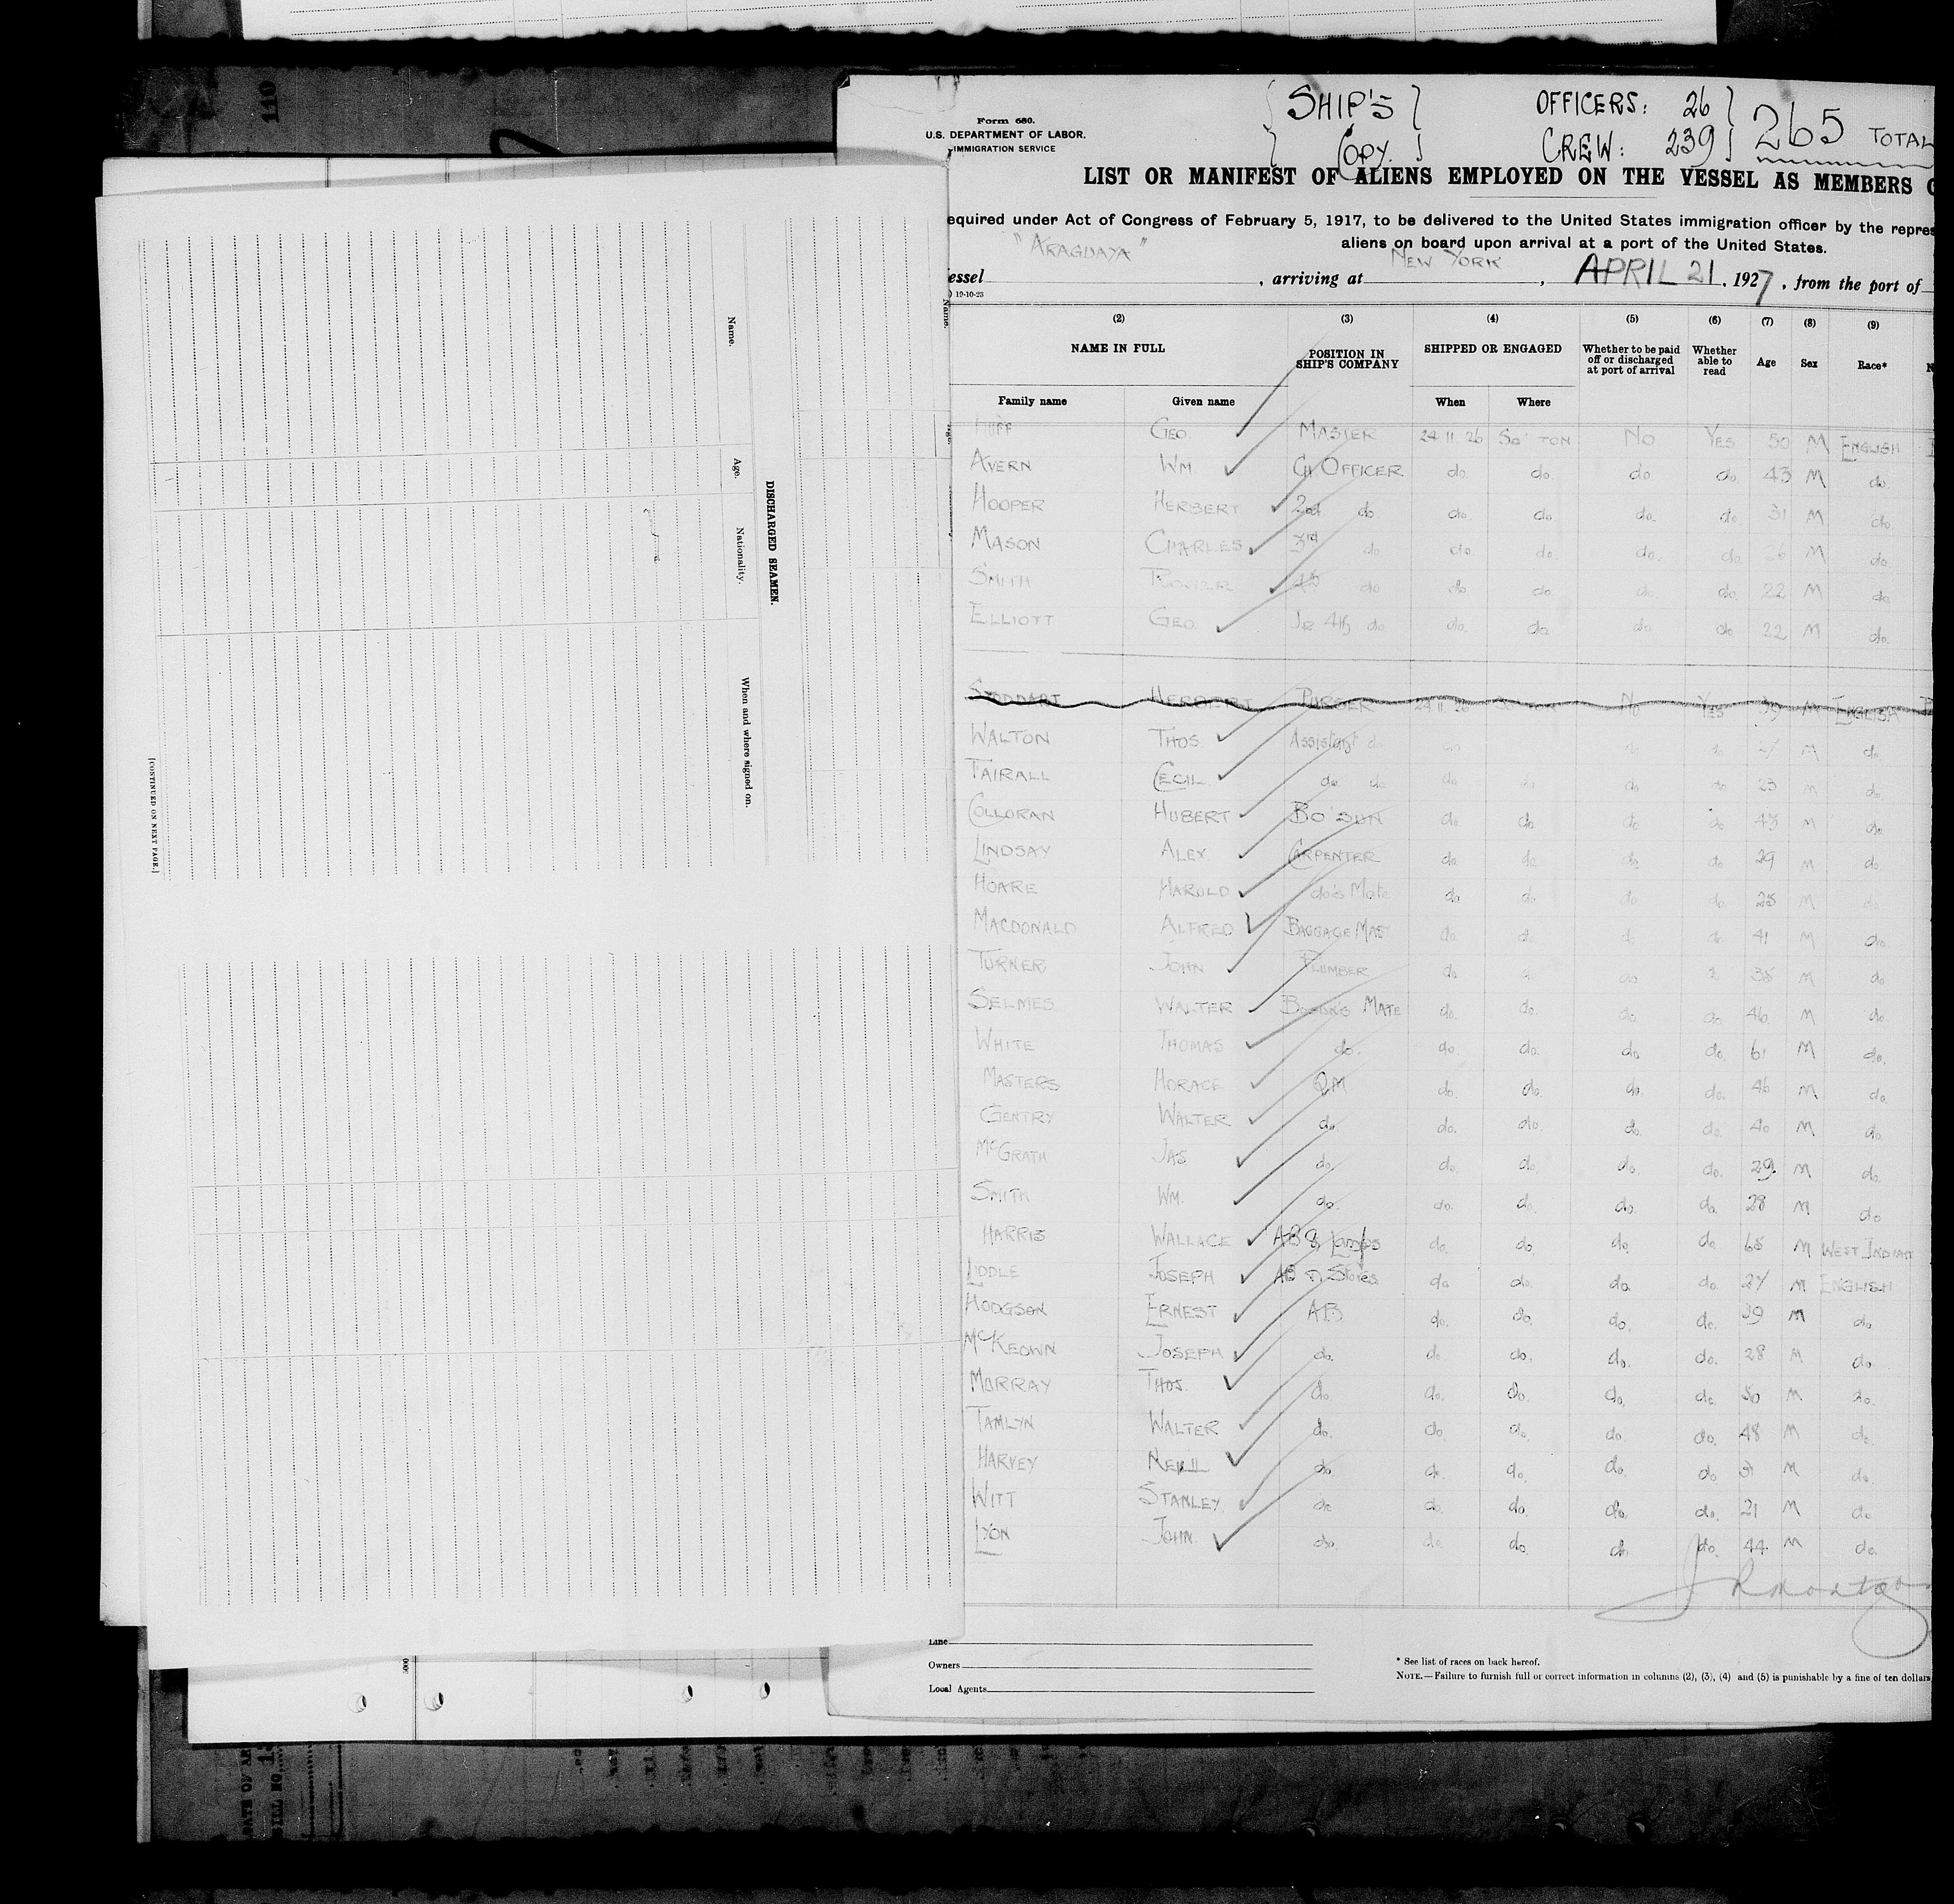 110
Form 680.
U.S. DEPARTMENT OF LABOR.
IMMIGRATION SERVICE
SHIP'S COPY.
OFFICERS: 26
CREW: 239
265 TOTAL
LIST OR MANIFEST OF ALIENS EMPLOYED ON THE VESSEL AS MEMBERS
equired under Act of Congress of February 5, 1917, to be delivered to the United States immigration officer by the repres
aliens on board upon arrival at a port of the United States.
essel "ARAGUAYA", arriving at NEW YORK, APRIL 21, 1927, from the port of
19-10-23
(2) (3) (4) (5) (6) (7) (8) (9)
NAME IN FULL POSITION IN SHIP'S COMPANY SHIPPED OR ENGAGED Whether to be paid off or discharged at port of arrival Whether able to read Age Sex Race*
Family name Given name When Where
GEO. MASTER 24 11 26 SO'TON NO YES 50 M ENGLISH
AVERN WM CH OFFICER do. do. do do 43 M do.
HOOPER HERBERT 2nd do do do. do. do. 31 M do.
MASON CHARLES 3rd do do. do. do. do. 26 M do.
SMITH do do do. do. do. 22 M do.
ELLIOTT GEO. Jr. 4th do do. do. do do 22 M do.
STODDART HERBERT PURSER 24 11 26 SO'TON NO YES 39 M ENGLISH
WALTON THOS. Assistant do M do.
TAIRALL CECIL do. do. do do. do do 23 M do.
COLLORAN HUBERT BO'SUN do. do. do do 43 M do.
LINDSAY ALEX. CARPENTER do. do. do. do. 29 M do
HOARE HAROLD do's Mate do do. do do. 25 M do
MACDONALD ALFRED BAGGAGE MAST do. do. do do. 41 M do.
TURNER JOHN PLUMBER do 38 M do
SELMES WALTER BOSUN'S MATE do. do. do. do. 46 M do
WHITE THOMAS do. do. do. do do. 61 M do.
MASTERS HORACE QM do. do. do. do. 46 M do.
GENTRY WALTER do. do. do. do. do. 40 M do.
McGRATH JAS. do. do. do. do. do. 29 M do.
SMITH WM. do. do. do. do. do. 28 M do
HARRIS WALLACE AB & Lamps do. do. do. do. 65 M WEST INDIAN
LIDDLE JOSEPH AB & Stores do do. do. do. 27 M ENGLISH
HODGSON ERNEST AB do. do. do. do. 39 M do.
McKEOWN JOSEPH do. do do. do. do. 28 M do.
MORRAY THOS. do. do. do. do. do. 50 M do.
TAMLYN WALTER do. do. do. do. do. 48 M do.
HARVEY NEILL do. do. do. do. do 31 M do.
WITT STANLEY do do. do. do. do. 21 M do
LYON JOHN. do. do. do. do. do. 44 M do.
Line
Owners
Local Agents
* See list of races on back hereof.
NOTE.—Failure to furnish full or correct information in columns (2), (3), (4) and (5) is punishable by a fine of ten dollars
DISCHARGED SEAMEN.
Name.
Age.
Nationality.
When and where signed on.
[CONTINUED ON NEXT PAGE.]
Name.
DATE OF AR